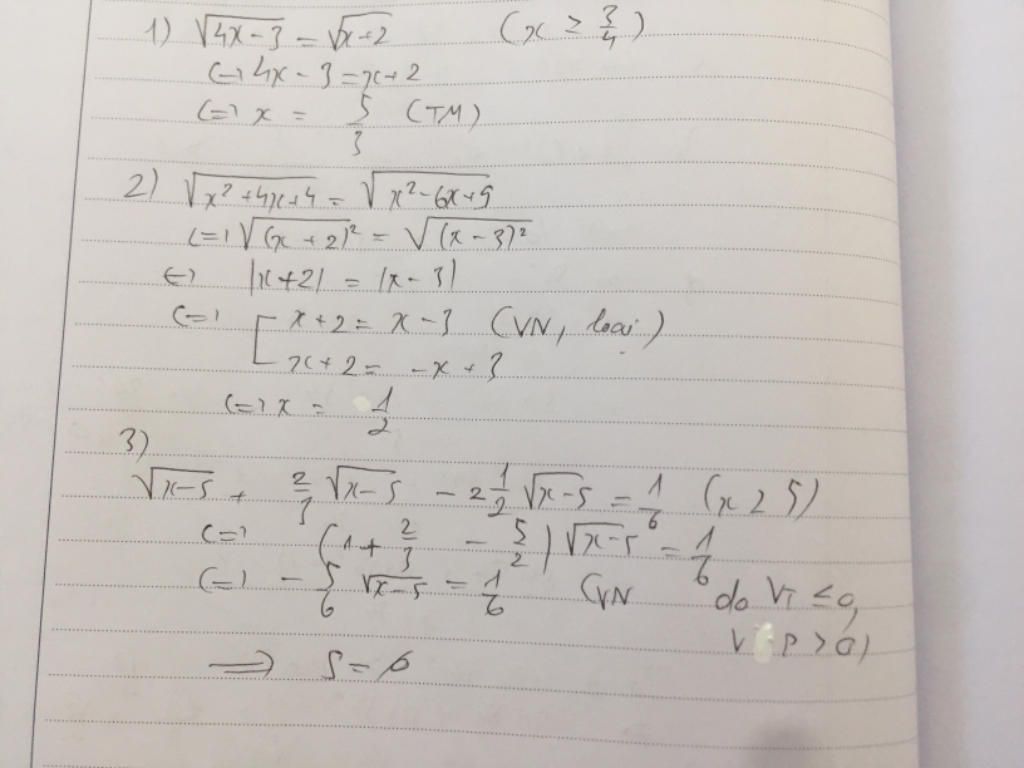 1) √(4x-3) = √(x+2) (x ≥ 3/4)
<=> 4x - 3 = x + 2
<=> x = 5/3 (TM)
2) √(x²+4x+4) = √(x²-6x+9)
<=> √((x+2)²) = √((x-3)²)
<=> |x+2| = |x-3|
<=> [ x+2 = x-3 (VN, loại)
x+2 = -x+3
<=> x = 1/2
3)
√(x-5) + 2/3 √(x-5) - 2 1/2 √(x-5) = 1/6 (x ≥ 5)
<=> (1 + 2/3 - 5/2) √(x-5) = 1/6
<=> - 5/6 √(x-5) = 1/6 (VN do VT ≤ 0,
VP > 0)
=> S = ∅